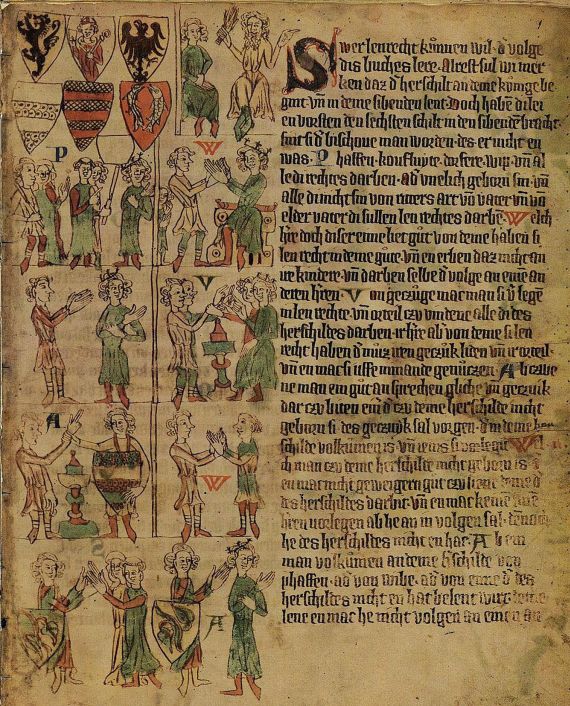 Swer lenrecht kůnnen wil· d̕ volge
dis buches lere· Alrest sul wi mer
ken daz d̕ herschilt an deme kůnige be
gint· vn̄ in deme sibenden lent· Doch habē di lei
en vorsten den sechsten schilt in den sibendē bracht·
sint si d̕ bischove man worden· des er nicht en
was· Phaffen· koufluyte· dorfere· wip· vn̄ al
le di rechtis darben· ad̕ vnelich geborn sin· vn̄
alle di nicht sin von ritters art vō vater vn̄ vō
elder vater di sullen len rechtes darbē· Welch
hˀre doch diser eime let gůt von deme haben si
len recht in deme gůte· vn̄ en erben daz nicht an
ire kindere· vn̄ darben selbe d̕ volge an eime an
deren hˀren· Von geczůge mac man si v̕legē
in len rechte· vn̄ orteil czu vindene alle di des
herschildes darben· ir hˀre ab̕ von deme si len
recht haben d̕ můz iren geczůk liden vn̄ ir orteil·
vn̄ en mac si uffe nimande genůczen· Ab czwe
ne man ein gut an sprechen gliche vn̄ geczůk
dar czu biten· eim d̕ czu deme herschilde nicht
geborn si· des geczůk sal vorgen· d̕ in deme her
schilde volkumen is· vn̄ ienis si v̕legit· Wel
ch man czu deme herschilde nicht geborn is·
en mac nicht geweigern gut czu liene deme d̕
des herschildes darbit· vn̄ en mac keine
hˀren vorlegen ab he an in volgen sal·
he des herschildes nicht en hat· Ab ein
man volkůmen an deme h̕schilde von
phaffen· ad̕ von wibe· ad̕ von eime d̕ des
herschildes nicht en hat belent wirt·
lene en mac he nicht volgen an einen an
P
W
V
A
W
S
A